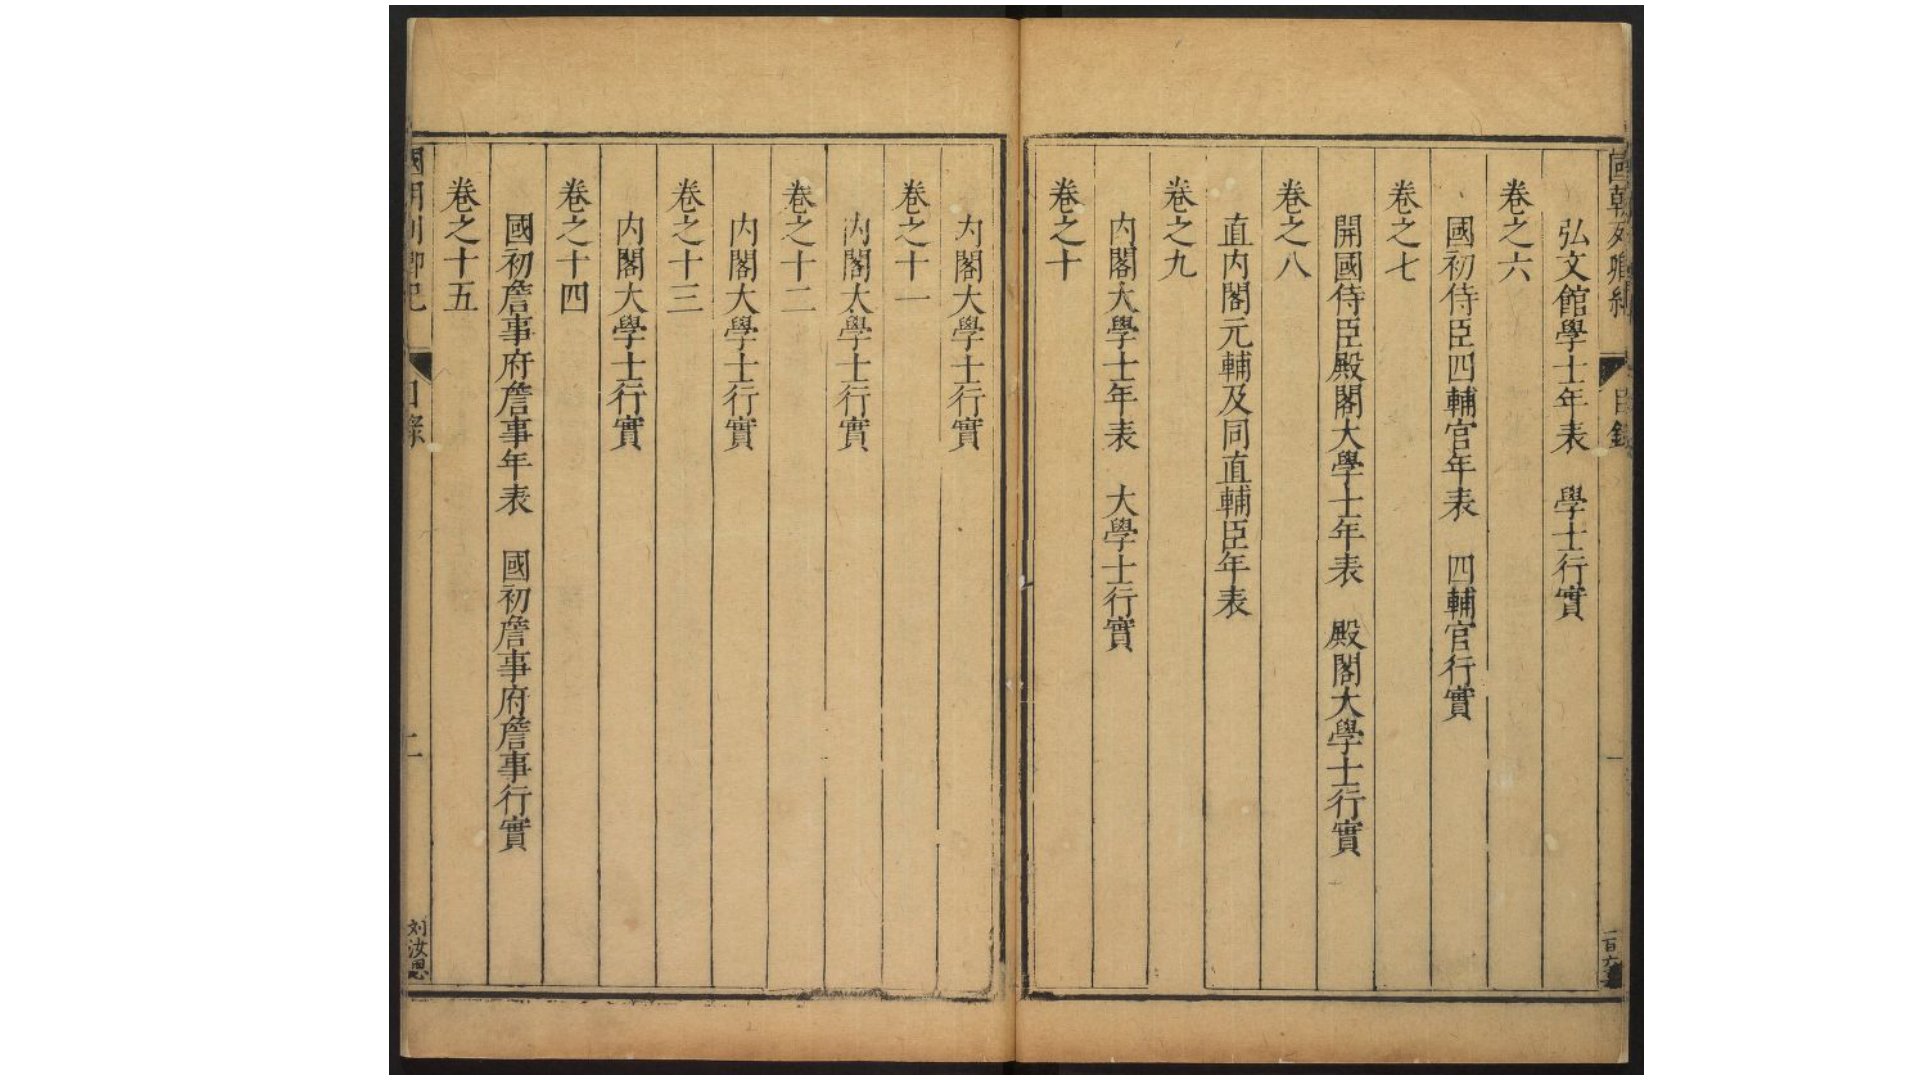 弘文館學士年表　學士行實
卷之六
國初侍臣四輔官年表　四輔官行實
卷之七
開國侍臣殿閣大學士年表　殿閣大學士行實
卷之八
直內閣元輔及同直輔臣年表
卷之九
內閣大學士年表　大學士行實
卷之十
內閣大學士行實
卷之十一
內閣大學士行實
卷之十二
內閣大學士行實
卷之十三
內閣大學士行實
卷之十四
國初詹事府詹事年表　國初詹事府詹事行實
卷之十五
國朝列卿紀
目錄
二
刘汝恩